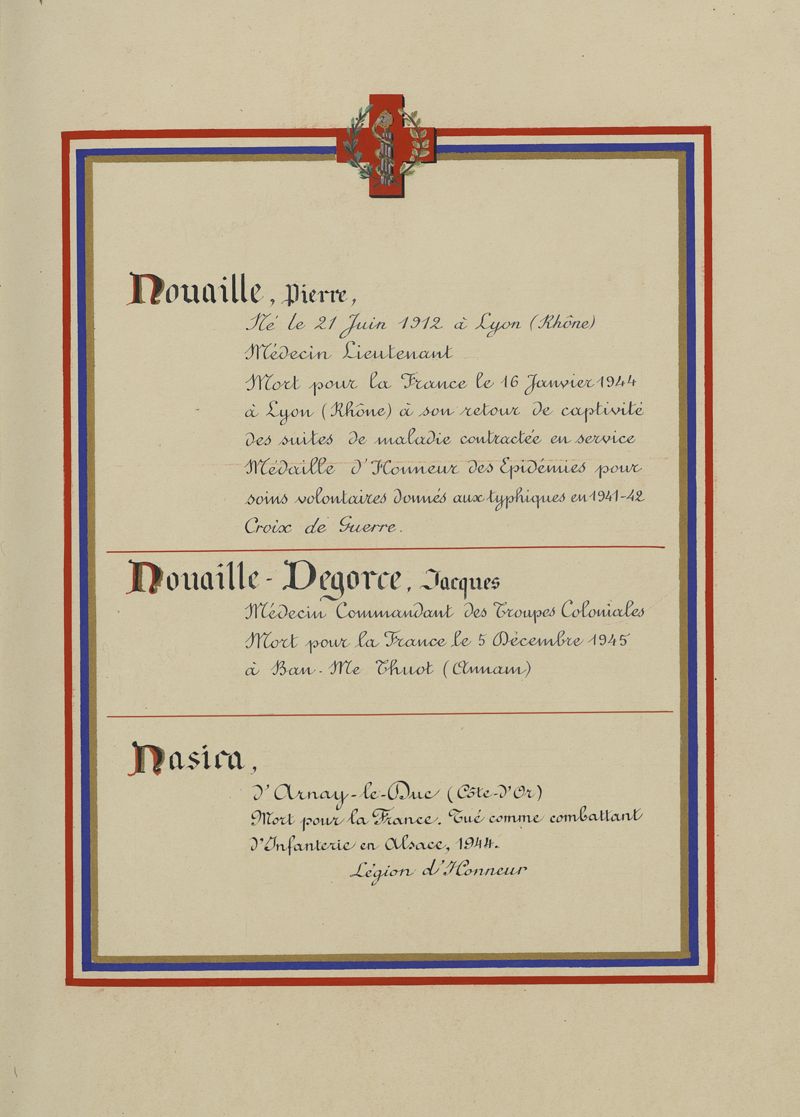 Nouaille, Pierre,
Né le 21 Juin 1912 à Lyon (Rhône)
Médecin Lieutenant
Mort pour la France le 16 Janvier 1944
à Lyon (Rhône) à son retour de captivité
des suites de maladie contractée en service
Médaille d'Honneur des Epidémies pour
soins volontaires donnés aux typhiques en 1941-42
Croix de Guerre.
Nouaille-Degorce, Jacques
Médecin Commandant des Troupes Coloniales
Mort pour la France le 5 Décembre 1945
à Ban-Me Thuot (Annam)
Nasica,
d'Arnay-le-Duc (Côte-d'Or)
Mort pour la France. Tué comme combattant
d'Infanterie en Alsace, 1944.
Légion d'Honneur